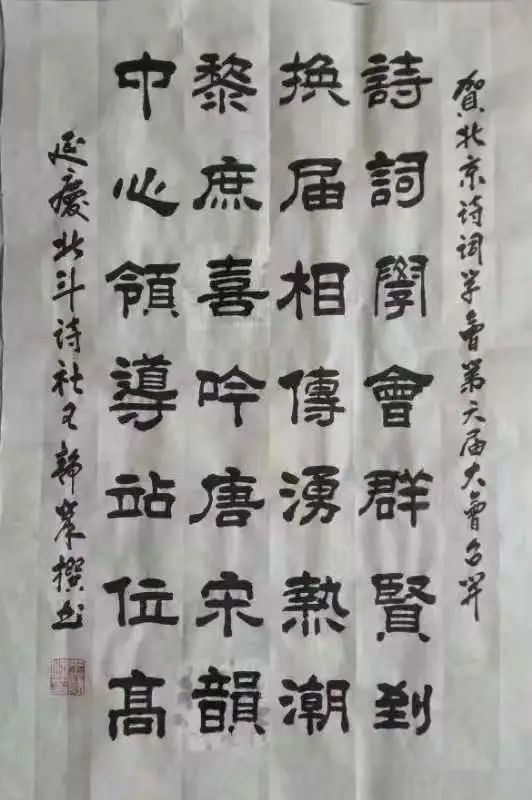 贺北京诗词学會第六届大會召开
詩詞學會群賢到
换届相傳湧熱潮
黎庶喜吟唐宋韻
中心領導站位髙
延慶北斗诗社王静業撰书